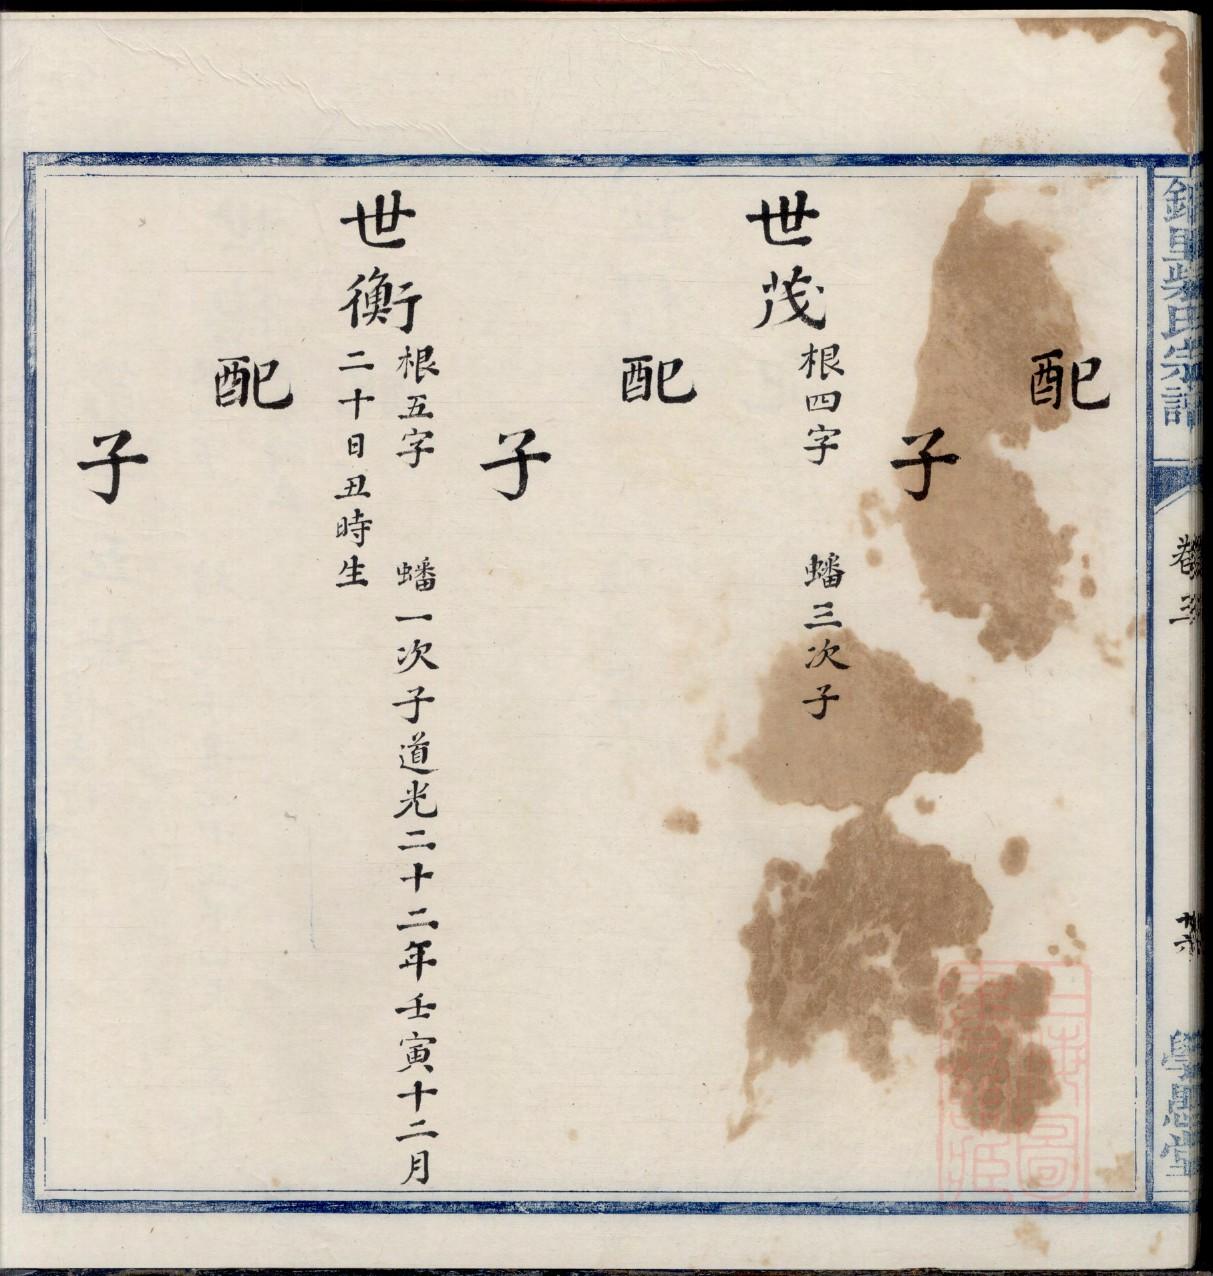 里柴氏宗譜
卷三
配
子
世茂
根四字 蟠三次子
配
子
世衡
根五字 蟠一次子道光二十二年壬寅十二月
二十日丑時生
配
子